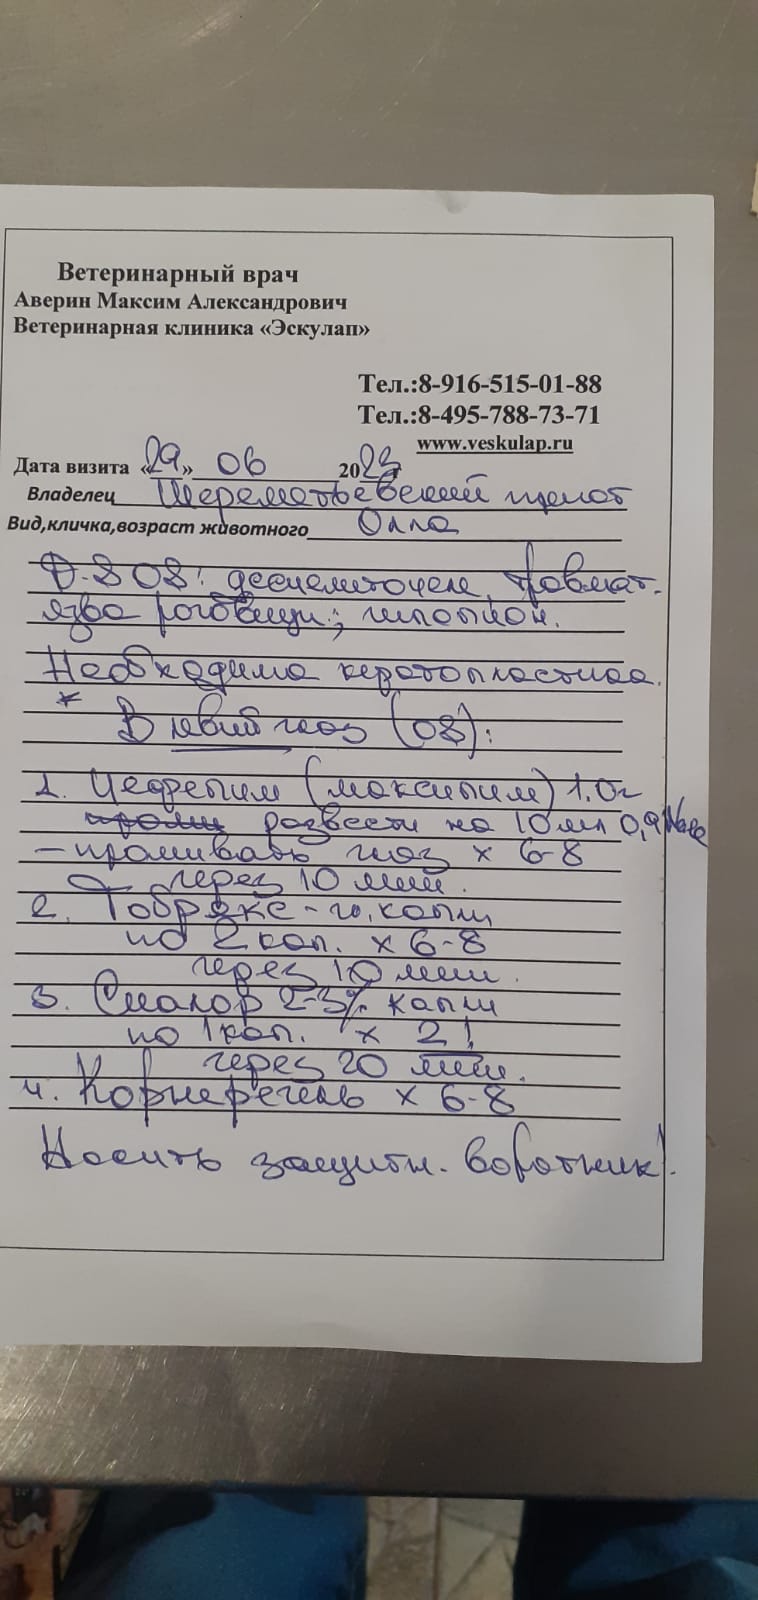 Ветеринарный врач
Аверин Максим Александрович
Ветеринарная клиника «Эскулап»
Тел.:8-916-515-01-88
Тел.:8-495-788-73-71
www.veskulap.ru
Дата визита «29» 06 2023
Владелец Шереметьевский приют
Вид,кличка,возраст животного Олла
D-s OS: десцеметоцеле, травмат.
язва роговицы; гипопион.
Необходима кератопластика.
* В левый глаз (OS):
1. Цефепим (максипим) 1,0г
развести на 10 мл 0,9 NaCl
- промывать глаз х 6-8
через 10 мин.
2. Тобрекс - гл. капли
по 2 кап. х 6-8
через 10 мин.
3. 2-3% капли
по 1 кап. х 2!
через 20 мин.
4. Корнерегель х 6-8
Носить защитн. воротник!